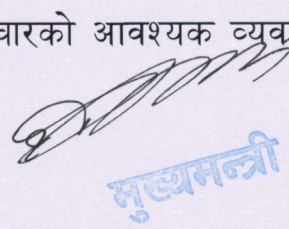 वारको आवश्यक व्यव
मुख्यमन्त्री